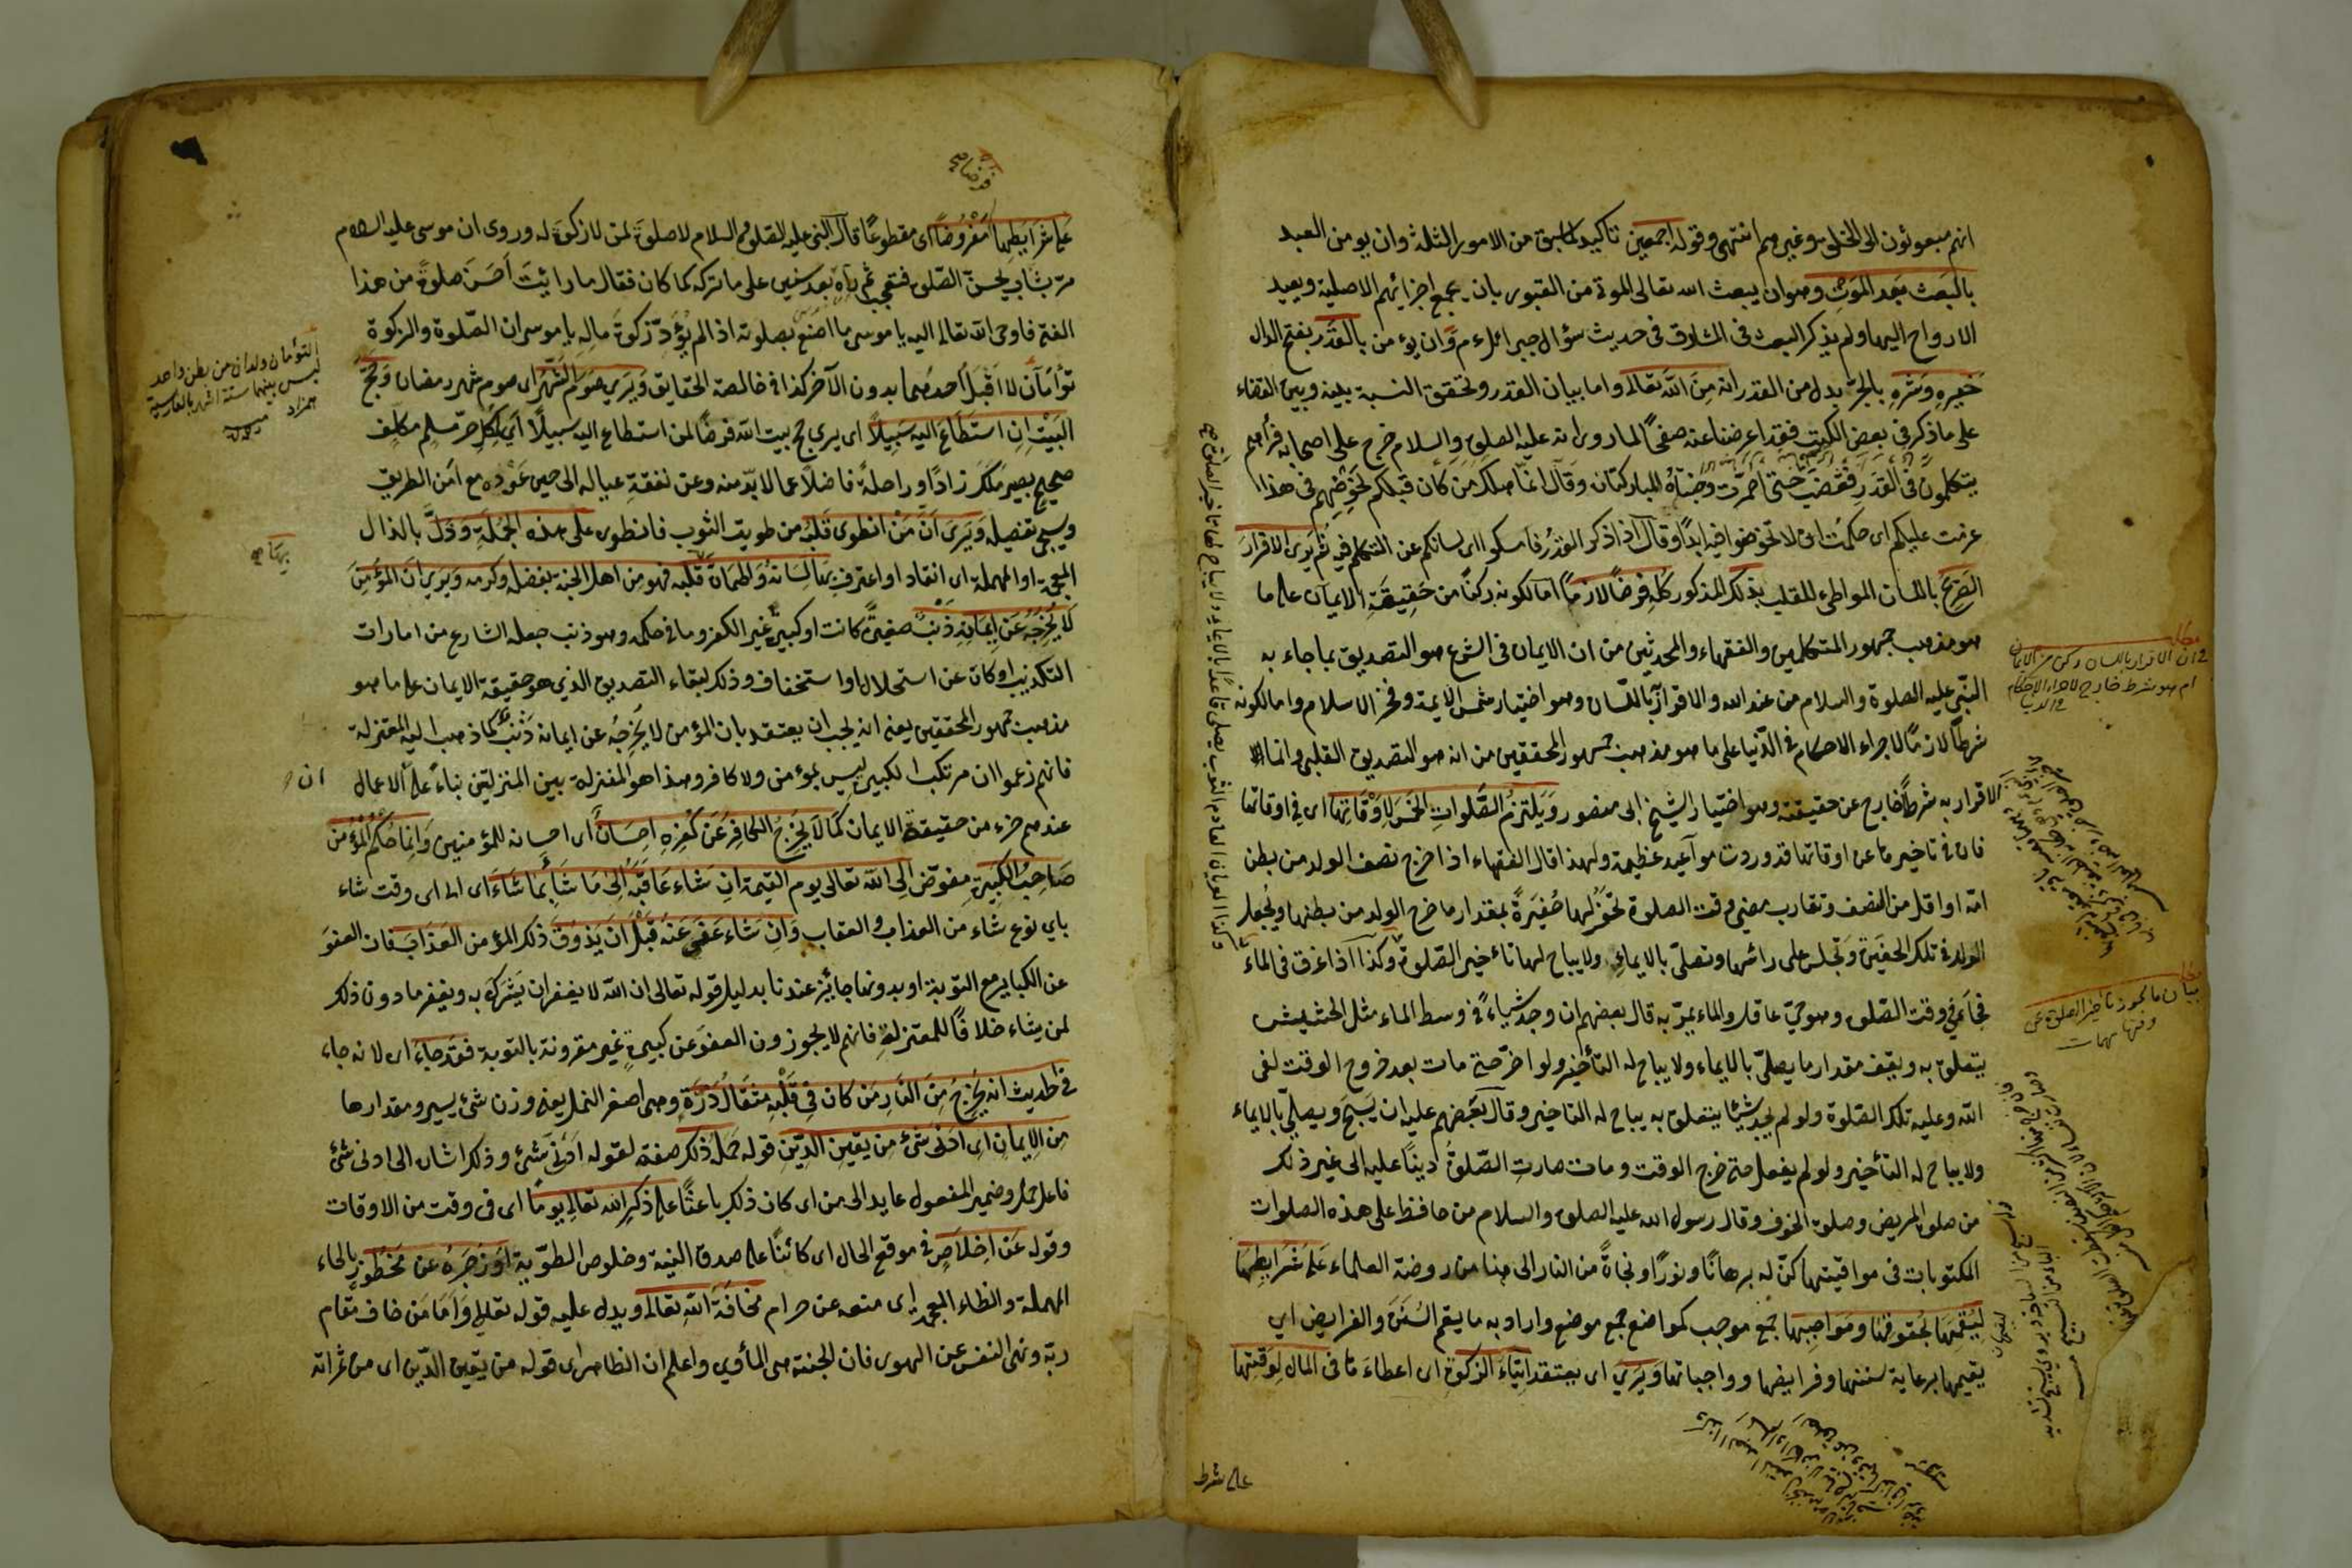 انهم مبعوثون الى الخلق وغيرهم انتهى وقوله اجمعين تاكيد لما سبق من الامور الثلثة وان يومن العبد
بالبعث بعد الموت وهو ان يبعث الله تعالى الموتى من القبور بان يجمع اجزائهم الاصلية ويعيد
الارواح اليها ولم يذكر البعث في المشارق في حديث سؤال جبرائيل ءم وان يؤمن بالقدر بفتح الدال
خيره وشره بالجر بدل من القدر انه من الله تعالى واما بيان القدر وتحقق النسبة بينه وبين القضاء
على ما ذكر في بعض الكتب فقد اعرضنا عنه صفحًا لما روى انه عليه الصلوة والسلام خرج على اصحابه فرأهم
يتكلمون في القدر فغضب حتى احمرت وجنتاه المباركتان وقال انما هلك من كان قبلكم لخوضهم في هذا
عزمت عليكم اى حكمت ان لا تخوضوا فيه ابدًا وقال اذا ذكر القدر فامسكوا اى لسانكم عن التكلم فيه ثم يرى الاقرار
الصريح باللسان المواطئ للقلب بذلك المذكور كله فرضًا لازمًا اما لكونه ركنًا من حقيقة الايمان على ما
هو مذهب جمهور المتكلمين والفقهاء والمحدثين من ان الايمان في الشرع هو التصديق بما جاء به
النبي عليه الصلوة والسلام من عند الله والاقرار باللسان وهو اختيار شمس الايمة وفخر الاسلام واما لكونه
شرطًا لازمًا لاجراء الاحكام في الدنيا على ما هو مذهب جمهور المحققين من انه هو التصديق القلبي وانما
الاقرار به شرط خارج عن حقيقته وهو اختيار الشيخ ابى منصور ويلتزم الصلوات الخمس لاوقاتها اى في اوقاتها
فان في تاخيرها عن اوقاتها قد وردت مواعيد عظيمة ولهذا قال الفقهاء اذا خرج نصف الولد من بطن
امه او اقل من النصف وتقارب مضى وقت الصلوة تحفر لها حفيرة بمقدار ما خرج الولد من بطنها ويجعل
الولد في تلك الحفيرة وتجلس على رأسها وتصلى بالايماء ولا يباح لها تأخير الصلوة وكذا اذا غرق في الماء
فجاء في وقت الصلوة وهو حي عاقل والماء يمر به قال بعضهم ان وجد شياء في وسط الماء مثل الحشيش
يتعلق به ويقف مقدار ما يصلى بالايماء ولا يباح له التأخير ولو اخر حتى مات بعد خروج الوقت لقى
الله وعليه تلك الصلوة ولو لم يجد شيئا يتعلق به يباح له التاخير وقال بعضهم عليه ان يسبح ويصلى بالايماء
ولا يباح له التأخير ولو لم يفعل حتى خرج الوقت ومات صارت الصلوة دينًا عليه الى غير ذلك
من صلوة المريض وصلوة الخوف وقال رسول الله عليه الصلوة والسلام من حافظ على هذه الصلوات
المكتوبات في مواقيتها كن له برهانًا ونورًا ونجاة من النار الى هنا من روضة العلماء على شرايطها
ليقيمها بحقوقها ومواجبها جمع موجب كمواضع جمع موضع واراد به ما يقم السنن والفرايض اي
يقيمها برعاية سننها وفرايضها وواجباتها ويرى اى يعتقد ايتاء الزكوة اى اعطاء ما في المال لوقتها
على شرط
مطلب
في ان الاقرار باللسان ركن من الايمان
ام هو شرط خارج لاجراء الاحكام
في الدنيا
مطلب
بيان ما يجوز تأخير الصلوة عن
وقتها
على شرايطها مفروضًا اى مقطوعًا قال النبى عليه الصلوة والسلام لا صلوة لمن لا زكوة له وروى ان موسى عليه السلام
مر بشاب يحسن الصلوة فتعجب ثم رآه بعد سنين على ما تركه كما كان فقال ما رائيت احسن صلوة من هذا
الفتى فاوحى الله تعالى اليه يا موسى ما اصنع بصلوته اذا لم يؤد زكوة ماله يا موسى ان الصلوة والزكوة
توأمان لا اقبل احدهما بدون الآخر كذا في خالصة الحقايق ويرى صوم الشهر اى صوم شهر رمضان وحج
البيت ان استطاع اليه سبيلًا اى يرى حج بيت الله فرضًا لمن استطاع اليه سبيلًا اى لكل حر مسلم مكلف
صحيح بصير ملك زادًا وراحلة فاضلًا عما لا بد منه وعن نفقة عياله الى حين عوده مع امن الطريق
وسيجئ تفصيله ويرى ان من انطوى قلبه من طويت الثوب فانطوى على هذه الجملة وذل بالذال
المعجمة او المهملة اى انقاد او اعترف بها لسانه واطمأن قلبه فهو من اهل الجنة بفضله وكرمه ويرى ان المؤمن
لا يخرجه عن ايمانه ذنب صغيرة كانت او كبيرة غير الكفر وما في حكمه وهو ذنب جعله الشارع من امارات
التكذيب او كان عن استحلال او استخفاف وذلك لبقاء التصديق الذي هو حقيقة الايمان على ما هو
مذهب جمهور المحققين يعنى انه يجب ان يعتقد بان المؤمن لا يخرجه عن ايمانه ذنب كما ذهب اليه المعتزلة
فانهم زعموا ان مرتكب الكبيرة ليس بمؤمن ولا كافر وهذا هو المنزلة بين المنزلتين بناءً على الاعمال
عندهم جزء من حقيقة الايمان كما لا يخرج الكافر عن كفره احسان اى احسانه للمؤمنين وانما حكم المؤمن
صاحب الكبيرة مفوض الى الله تعالى يوم القيمة ان شاء عاقبه الى ما شاء بما شاء اى الى اى وقت شاء
باي نوع شاء من العذاب والعقاب وان شاء عفى عنه قبل ان يذوق ذلك المؤمن العذاب فان العفو
عن الكباير مع التوبة او بدونها جائز عندنا بدليل قوله تعالى ان الله لا يغفر ان يشرك به ويغفر ما دون ذلك
لمن يشاء خلافًا للمعتزلة فانهم لا يجوزون العفو عن كبيرة غير مقرونة بالتوبة فقد جاء اى لانه جاء
في الحديث انه يخرج من النار من كان في قلبه مثقال ذرة وهى اصغر النمل يعنى وزن شئ يسير ومقدارها
من الايمان اى ادنى شئ من يقين الدين قوله حمل ذلك صفة لقوله ادنى شئ وذلك اشارة الى ادنى شئ
فاعل حمل وضمير المفعول عايد الى من اى كان ذلك باعثًا على ذكر الله تعالى يومًا اى في وقت من الاوقات
وقوله عن اخلاص في موقع الحال اى كائنًا على صدق النية وخلوص الطوية او زجره عن محظور بالحاء
المهملة والظاء المعجمة اى منعه عن حرام مخافة الله تعالى ويدل عليه قوله تعالى واما من خاف مقام
ربه ونهى النفس عن الهوى فان الجنة هى المأوي واعلم ان الظاهر ان قوله من يقين الدين اى من ثمراته
التوأمان ولدان من بطن واحد
ليس بينهما ستة اشهر بالفارسية
همزاد